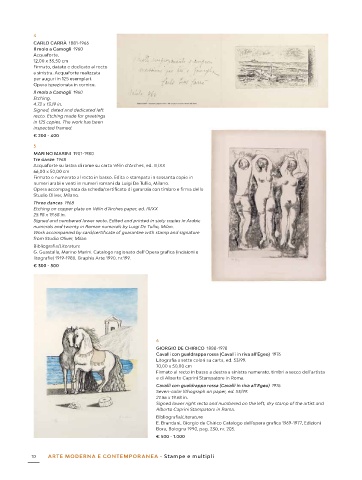 4
CARLO CARRÀ 1881-1966
Il molo a Camogli 1960
Acquaforte.
12,00 x 38,50 cm
Firmato, datato e dedicato al recto
a sinistra. Acquaforte realizzata
per auguri in 125 esemplari.
Opera ispezionata in cornice.
Il molo a Camogli 1960
Etching.
4.72 x 15.19 in.
Signed, dated and dedicated left
recto. Etching made for greetings
in 125 copies. The work has been
inspected framed.
€ 300 - 400
5
MARINO MARINI 1901-1980
Tre danze 1968
Acquaforte su lastra di rame su carta Vélin d'Arches, ed.
66,00 x 50,00 cm
Firmato e numerato al recto in basso. Edito e stampato in sessanta copie in
numeri arabi e venti in numeri romani da Luigi De Tullio, Milano.
Opera accompagnata da scheda/certificato di garanzia con timbro e firma dello
Studio Oliver, Milano.
Three dances 1968
Etching on copper plate on Vélin d'Arches paper, ed.
25.98 x 19.68 in.
Signed and numbered lower recto. Edited and printed in sixty copies in Arabic
numerals and twenty in Roman numerals by Luigi De Tullio, Milan.
Work accompanied by card/certificate of guarantee with stamp and signature
from Studio Oliver, Milan.
Bibliografia/Literature
G. Guastalla, Marino Marini. Catalogo ragionato dell'Opera grafica (incisioni e
litografie) 1919-1980, Graphis Arte 1990,
€ 300 - 500
6
GIORGIO DE CHIRICO 1888-1978
Cavalli con gualdrappa rossa (Cavalli in riva all'Egeo) 1976
Litografia a sette colori su carta, ed. 53/99.
70,00 x 50,00 cm
Firmato al recto in basso a destra e sinistra numerato, timbri a secco dell'artista
e di Alberto Caprini Stampatore in Roma.
Cavalli con gualdrappa rossa (Cavalli in riva all'Egeo) 1976
Seven-color lithograph on paper, ed. 53/99.
27.56 x 19.68 in.
Signed lower right recto and numbered on the left, dry stamp of the artist and
Alberto Caprini Stampatore in Roma.
Bibliografia/Literature
E. Brandani, Giorgio de Chirico Catalogo dell'opera grafica 1969-1977, Edizioni
Bora, Bologna 1990, pag. 230,
€ 500 - 1.000
10 ARTE MODERNA E CONTEMPORANEA - Stampe e multipli